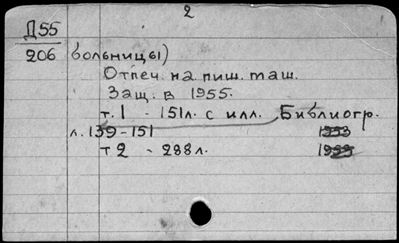 2
Д55
206 больницы)
Отпеч. на пиш. маш.
Защ. в 1955.
т. 1 - 151л. с илл. Библиогр.
л. 139-151 1953
т 2 - 288л.